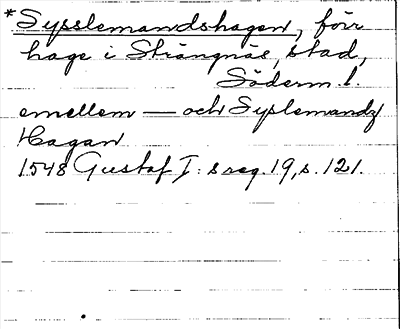 *Sysslemandshagen, förr
hage i Strängnäs, stad,
Söderm. l.
emellem — och Syslemandz
Hagan
1548 Gustaf I: s reg. 19, s. 121.